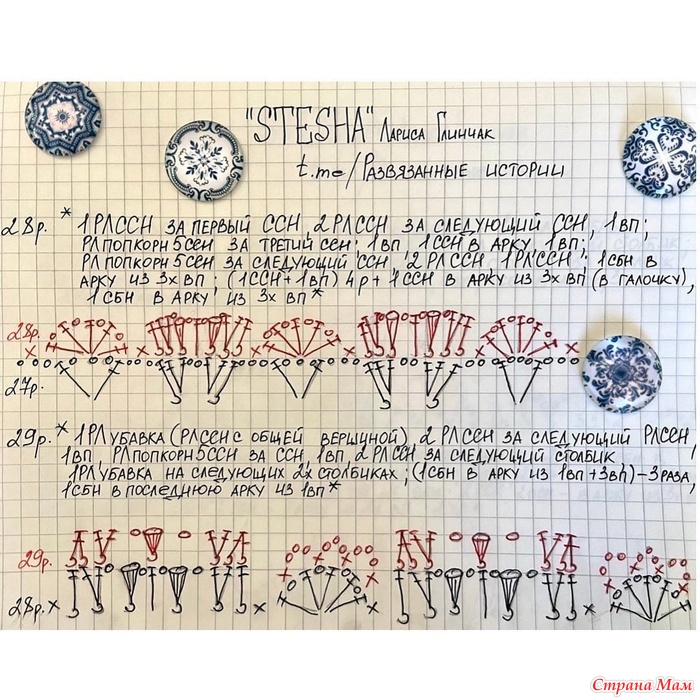 "STESHA" Лариса Глинчак
t.me/Развязанные истории
28р. * 1РЛССН ЗА ПЕРВЫЙ ССН, 2РЛССН ЗА СЛЕДУЮЩИЙ ССН, 1ВП;
РЛПОПКОРН 5ССН ЗА ТРЕТИЙ ССН; 1ВП, 1ССН В АРКУ, 1ВП;
РЛПОПКОРН 5ССН ЗА СЛЕДУЮЩИЙ ССН, 2РЛССН, 1РЛССН; 1СБН В
АРКУ ИЗ 3Х ВП; (1ССН+1ВП) 4Р + 1ССН В АРКУ ИЗ 3Х ВП (В ГАЛОЧКУ),
1СБН В АРКУ ИЗ 3Х ВП *
28р.
27р.
29р. * 1РЛУБАВКА (РЛССН С ОБЩЕЙ ВЕРШИНОЙ), 2РЛССН ЗА СЛЕДУЮЩИЙ РЛССН,
1ВП, РЛПОПКОРН 5ССН ЗА ССН, 1ВП, 2РЛССН ЗА СЛЕДУЮЩИЙ СТОЛБИК
1РЛУБАВКА НА СЛЕДУЮЩИХ 2Х СТОЛБИКАХ; (1СБН В АРКУ ИЗ 1ВП + 3ВП) - 3 РАЗА,
1СБН В ПОСЛЕДНЮЮ АРКУ ИЗ 1ВП *
29р.
28р.
Страна Мам